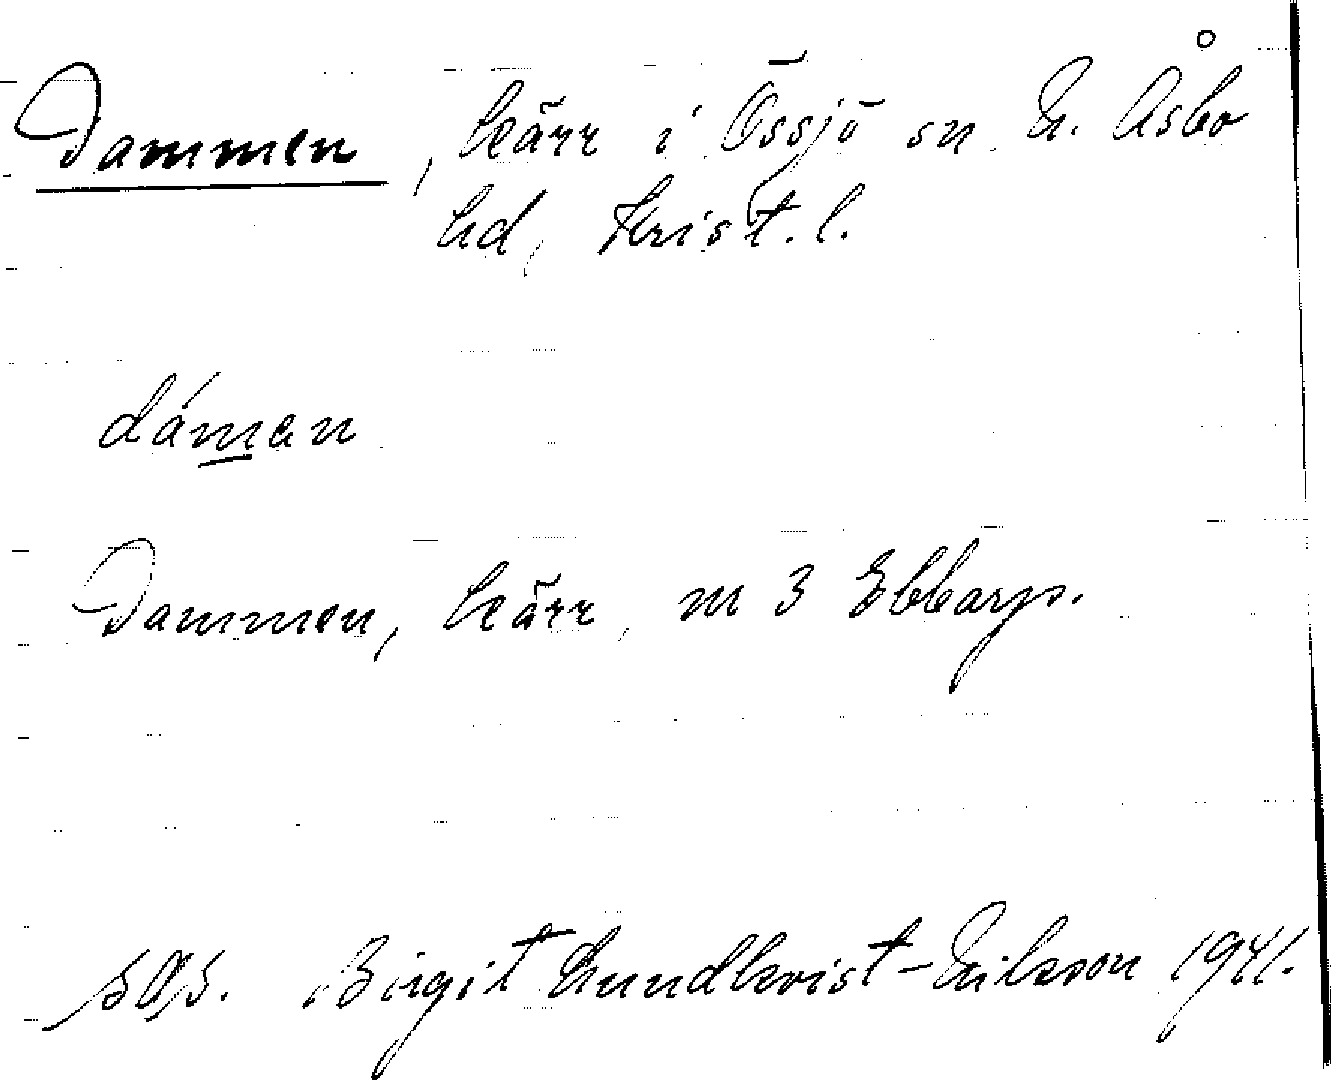 Dammen, kärr i Össjö sn N. Åsbo
hd, Krist. l.
dáman
Dammen, kärr, m 3 Ebbarp.
Birgit Lundkvist-Nilsson 1941.